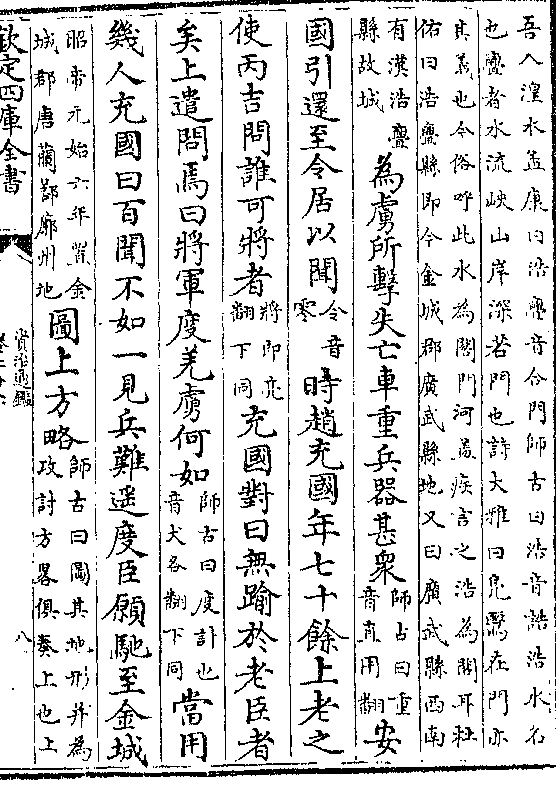 吾入湟水孟康曰浩亹音合門師古曰浩音誥浩水名
也亹者水流峽山岸深若門也詩大雅曰鳧鷖在門亦
其義也今俗呼此水為閤門河蓋疾言之浩為閤耳杜
佑曰浩亹縣即今金城郡廣武縣地又曰廣武縣西南
有漢浩亹縣故城為虜所擊失亡車重兵器甚衆師古曰重音直用翻安
國引還至令居以聞令音零時趙充國年七十餘上老之
使丙吉問誰可將者將即亮翻下同充國對曰無踰於老臣者
矣上遣問焉曰將軍度羌虜何如師古曰度計也音大各翻下同當用
幾人充國曰百聞不如一見兵難遥度臣願馳至金城
昭帝元始六年置金城郡唐蘭鄯廓州地圖上方略師古曰圖其地形并為攻討方畧俱奏上也上
欽定四庫全書
資治通鑑
八